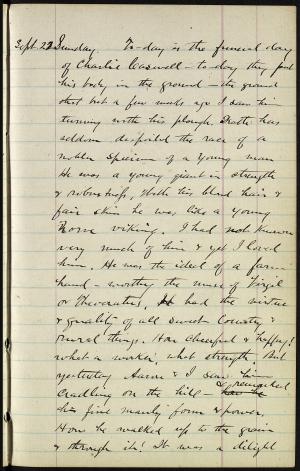 Sept. 22 Sunday. To-day is the funeral day
of Charlie Caswell - to-day they put
his body in the ground - the ground
that but a few weeks ago I saw him
turning with his plough. Death has
seldom despoiled the race of a
nobler specimen of a young man
He was a young giant in strength
& robustness, With his blond hair &
fair skin he was like a young
Norse viking. I had not known
very much of him & yet I loved
him. He was the ideal of a farm
hand - worthy the muse of Virgil
or Theocritus, had the virtue
& quality of all sweet country &
rural things. How cheerful & happy!
what a worker, what strength. But
yesterday Aaron & I saw him
cradling on the hill - & remarked
his fine manly form & power.
How he walked up to the grain
& through it! It was a delight